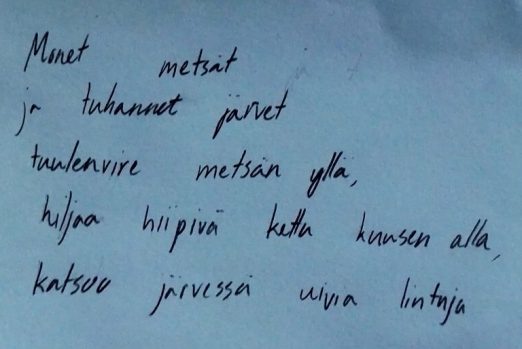 Monet metsät
ja tuhannet järvet
tuulenvire metsän yllä,
hiljaa hiipivä kettu kuusen alla,
katsoo järvessä uivia lintuja